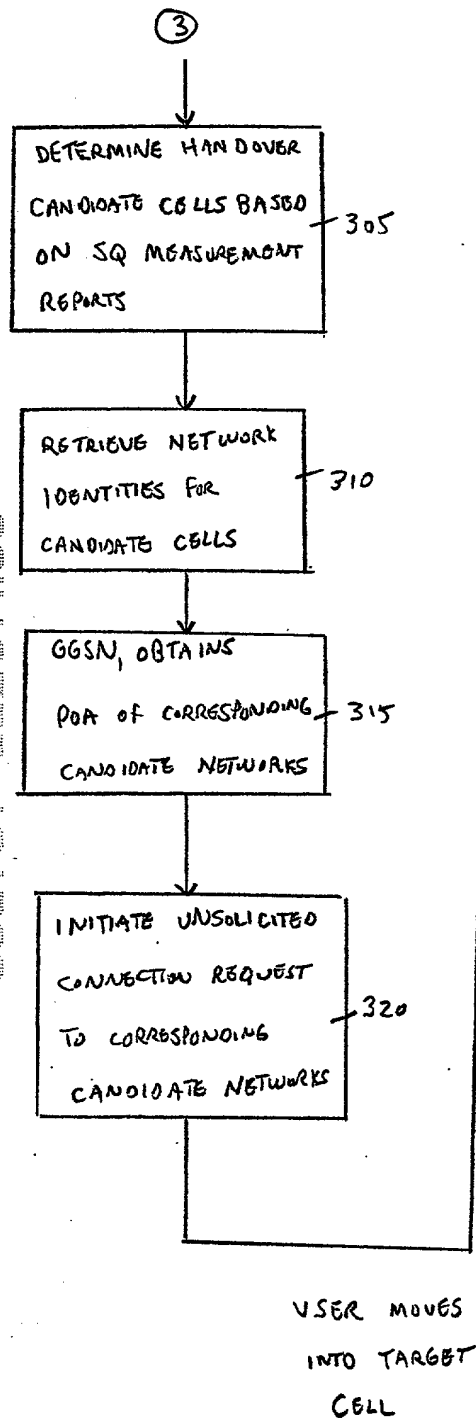 3
DETERMINE HANDOVER
CANDIDATE CELLS BASED
ON SQ MEASUREMENT
REPORTS
305
RETRIEVE NETWORK
IDENTITIES FOR
CANDIDATE CELLS
310
GGSN, OBTAINS
POA OF CORRESPONDING
CANDIDATE NETWORKS
315
INITIATE UNSOLICITED
CONNECTION REQUEST
TO CORRESPONDING
CANDIDATE NETWORKS
320
USER MOVES
INTO TARGET
CELL